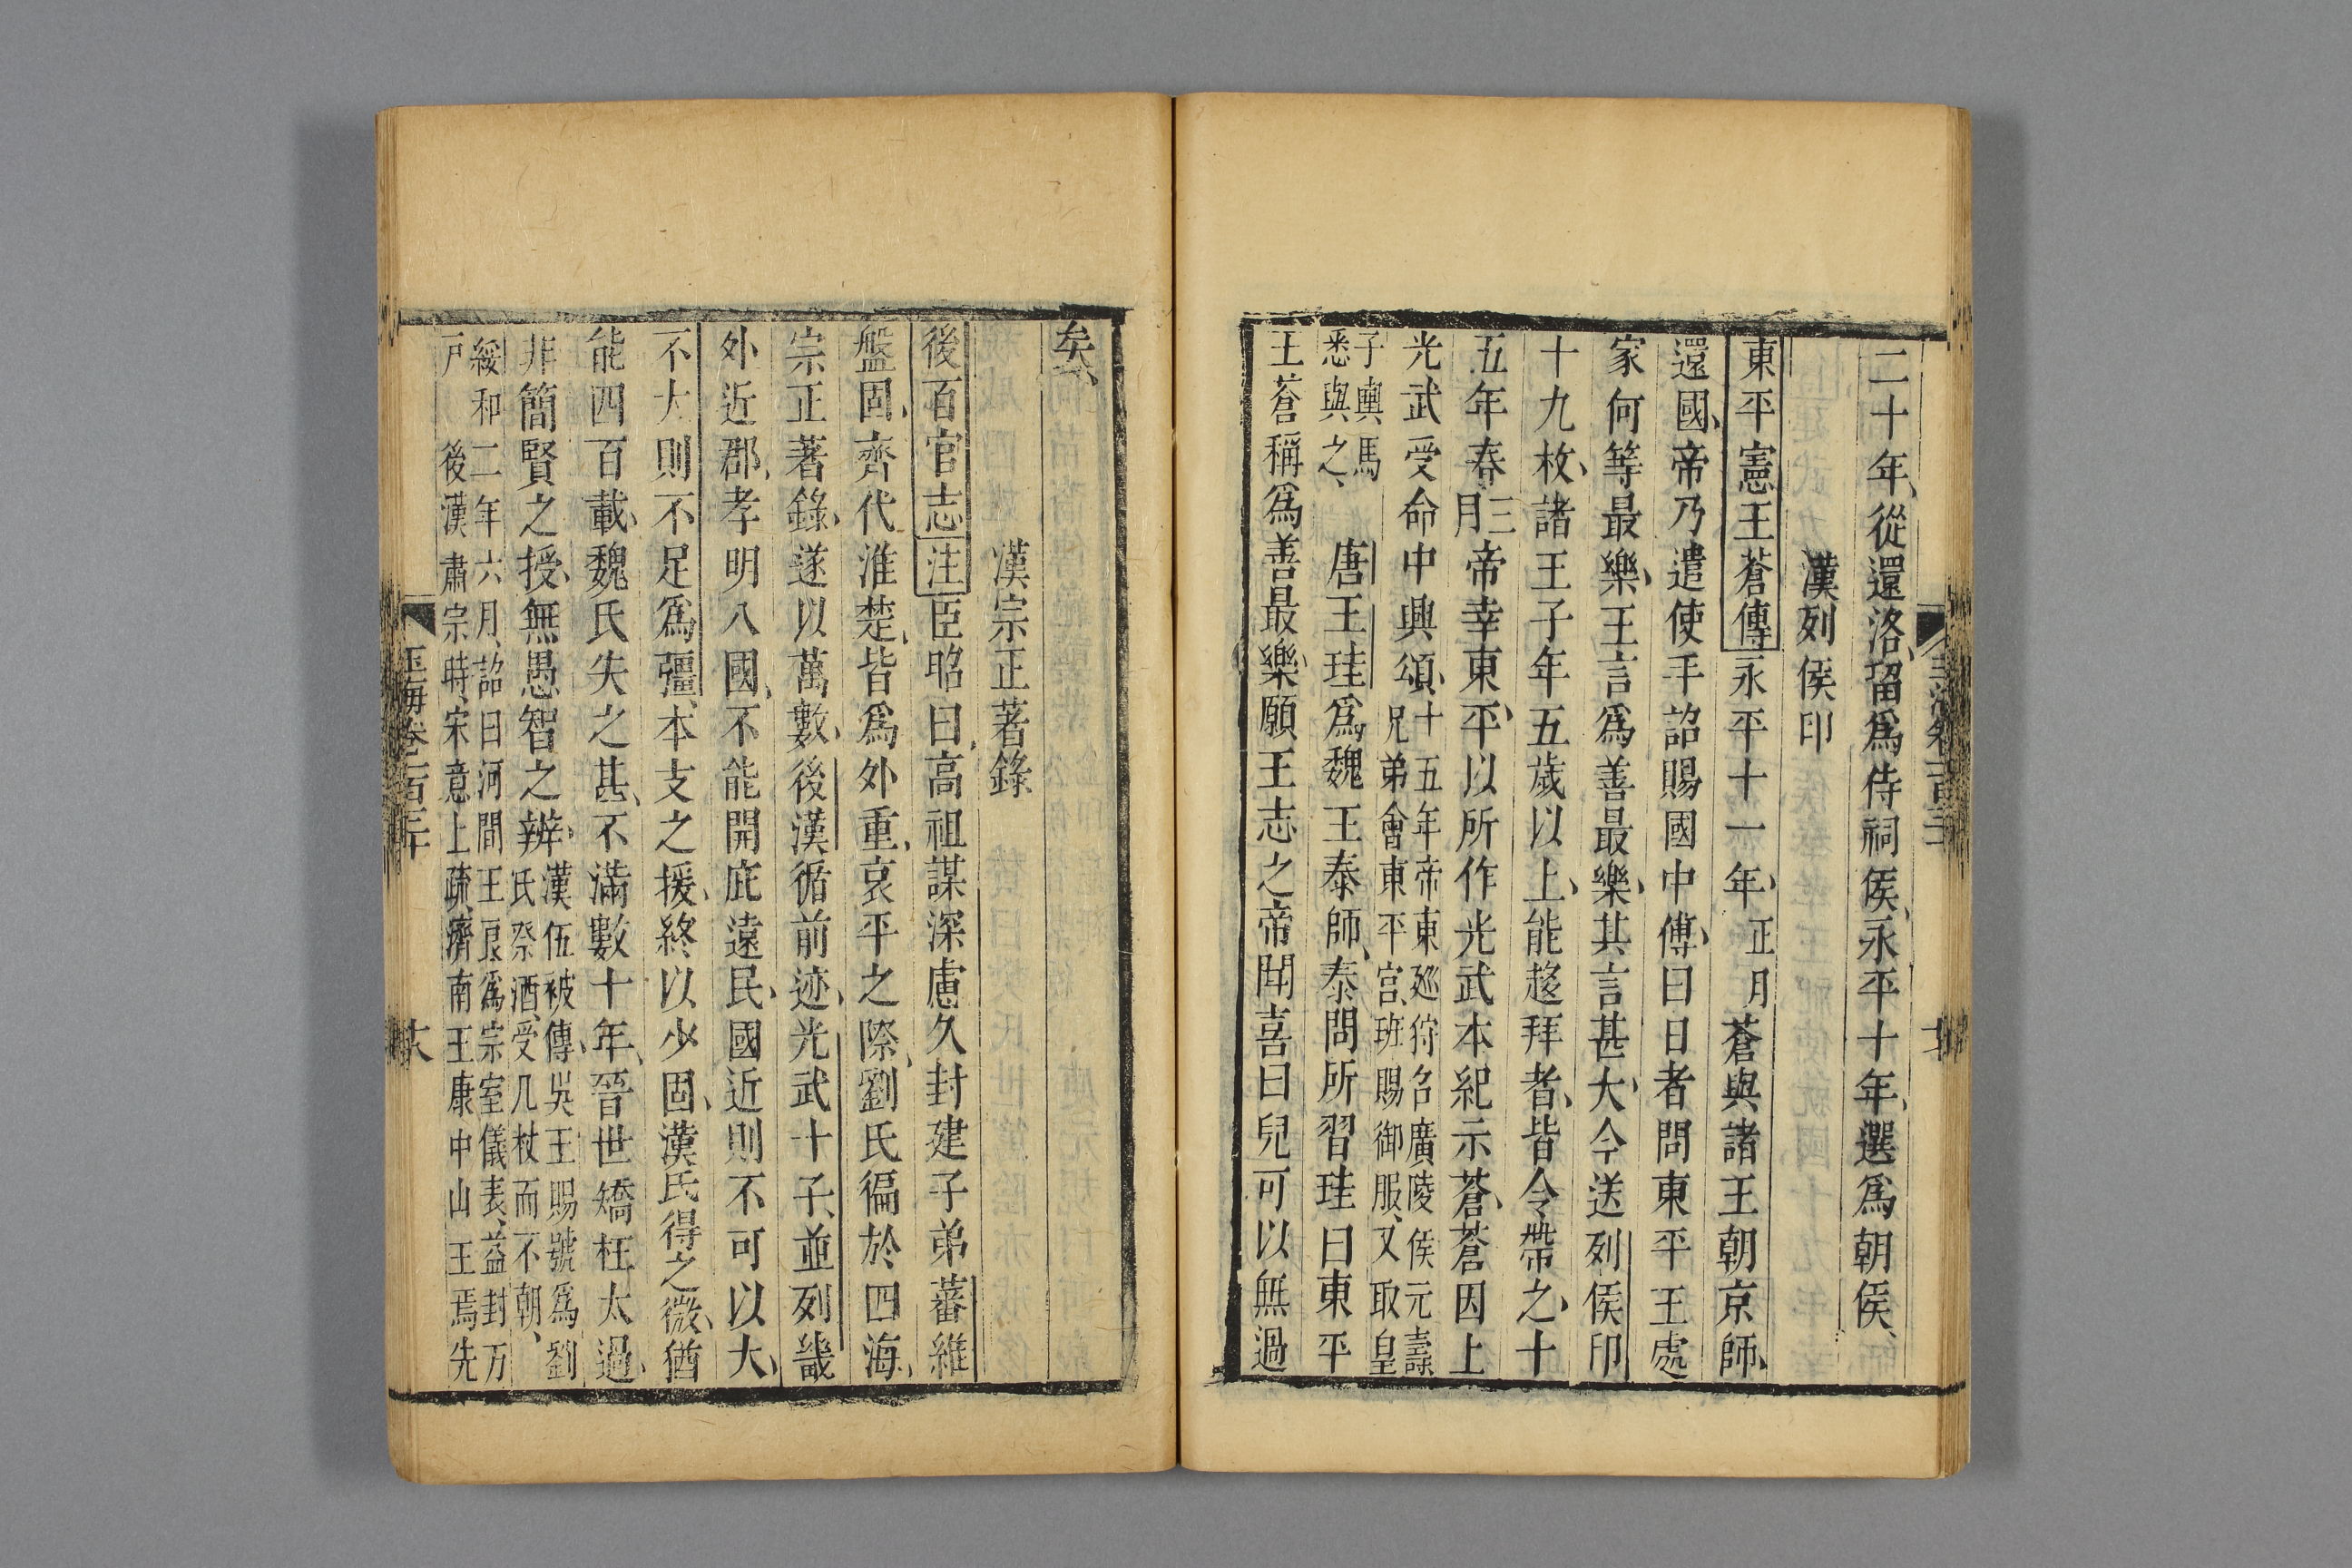 二十年、從還洛、留爲侍祠侯、永平十年、選爲朝侯、
漢列侯印
東平憲王蒼傳永平十一年、正月蒼與諸王朝京師、
還國、帝乃遣使手詔賜國中傅、曰日者問東平王處
家何等最樂、王言爲善最樂、其言甚大、今送列侯印
十九枚、諸王子年五歲以上、能趍拜者、皆令帶之、十
五年春三月帝幸東平、以所作光武本紀示蒼、蒼因上
光武受命中興頌、十五年帝東廵狩名廣陵侯元壽
兄弟會東平宮、班賜御服、又取皇
子輿馬
悉與之、
唐王珪爲魏王泰師、泰問所習珪曰東平
王蒼稱爲善最樂、願王志之帝聞喜曰兒可以無過
矣、
漢宗正著錄
後百官志注臣昭曰、高祖謀深慮久封建子弟蕃維
盤固、齊代淮楚、皆爲外重、哀平之際、劉氏徧於四海、
宗正著錄、遂以萬數、後漢循前迹、光武十子、並列畿
外近郡、孝明八國、不能開庇遠民、國近則不可以大、
不大則不足爲彊、本支之援、終以少固、漢氏得之微、猶
能四百載、魏氏失之甚、不滿數十年、晉世矯枉太過、
非簡賢之授、無愚智之辨、漢伍被傳、吳王賜號爲劉
氏祭酒、受几杖而不朝、
綏和二年六月、詔曰河間王良爲宗室儀表、益封万
戸
後漢肅宗時、宋意上疏、濟南王康中山王焉先
玉海卷一百三十